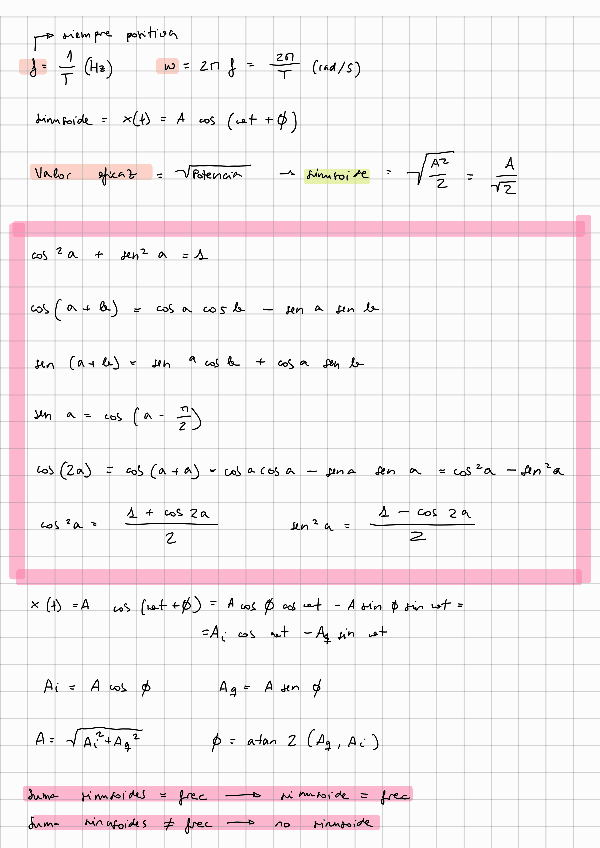 siempre positiva
f = 1/T (Hz) ω = 2π f = 2π/T (rad/s)
sinusoide = x(t) = A cos (ωt + ϕ)
Valor eficaz = √Potencia → sinusoide = √(A²/2) = A/√2
cos²a + sen² a = 1
cos (a + b) = cos a cos b − sen a sen b
sen (a+b) = sen a cos b + cos a sen b
sen a = cos (a − π/2)
cos (2a) = cos (a+a) = cos a cos a − sen a sen a = cos²a − sen²a
cos²a = (1 + cos 2a)/2 sen²a = (1 − cos 2a)/2
x(t) = A cos (ωt + ϕ) = A cos ϕ cos ωt − A sin ϕ sin ωt =
= Ai cos ωt − Aq sin ωt
Ai = A cos ϕ Aq = A sen ϕ
A = √(Ai² + Aq²) ϕ = atan 2 (Aq, Ai)
Suma sinusoides = frec → sinusoide = frec
Suma sinusoides ≠ frec → no sinusoide